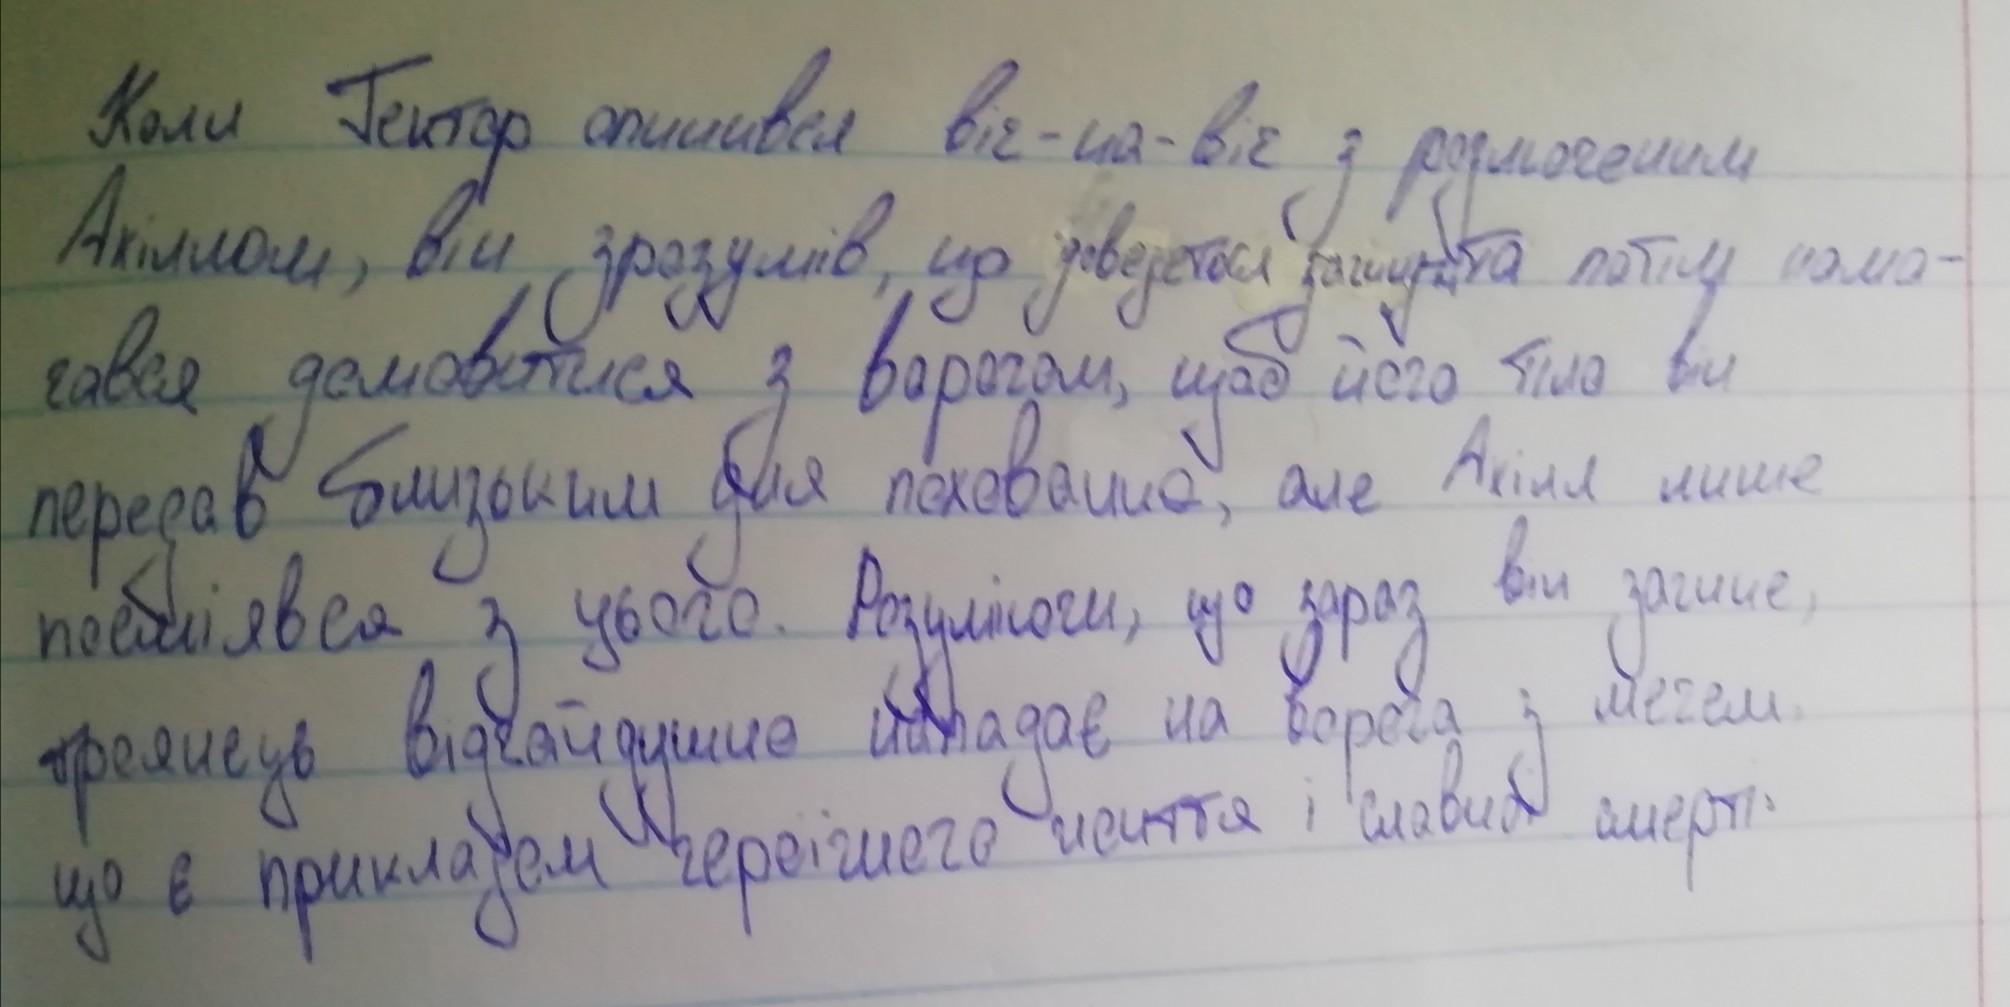 Коли Гектор опинився віч-на-віч з розлюченим
Ахіллом, він зрозумів, що доведеться загинути та потім нама-
гався домовитися з ворогом, щоб його тіло він
передав близьким для поховання, але Ахілл лише
посміявся з цього. Розуміючи, що зараз він загине,
троянець відчайдушно нападає на ворога з мечем.
що є прикладом героїчного життя і славної смерті.